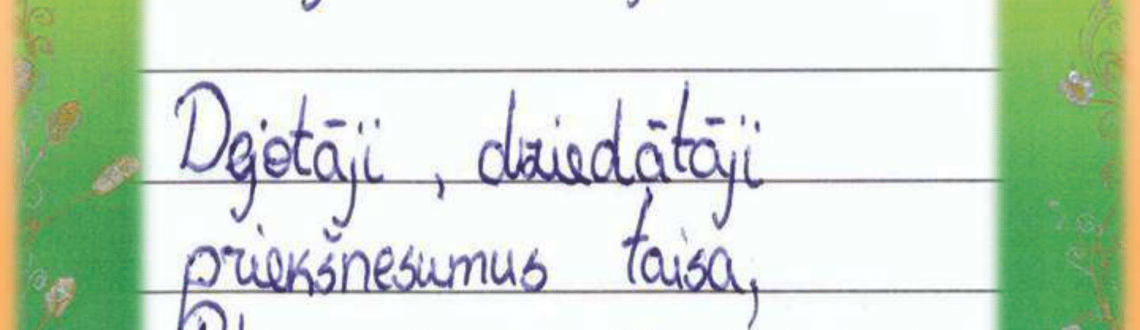 Dejotāji , dziedātāji
priekšnesumus taisa,